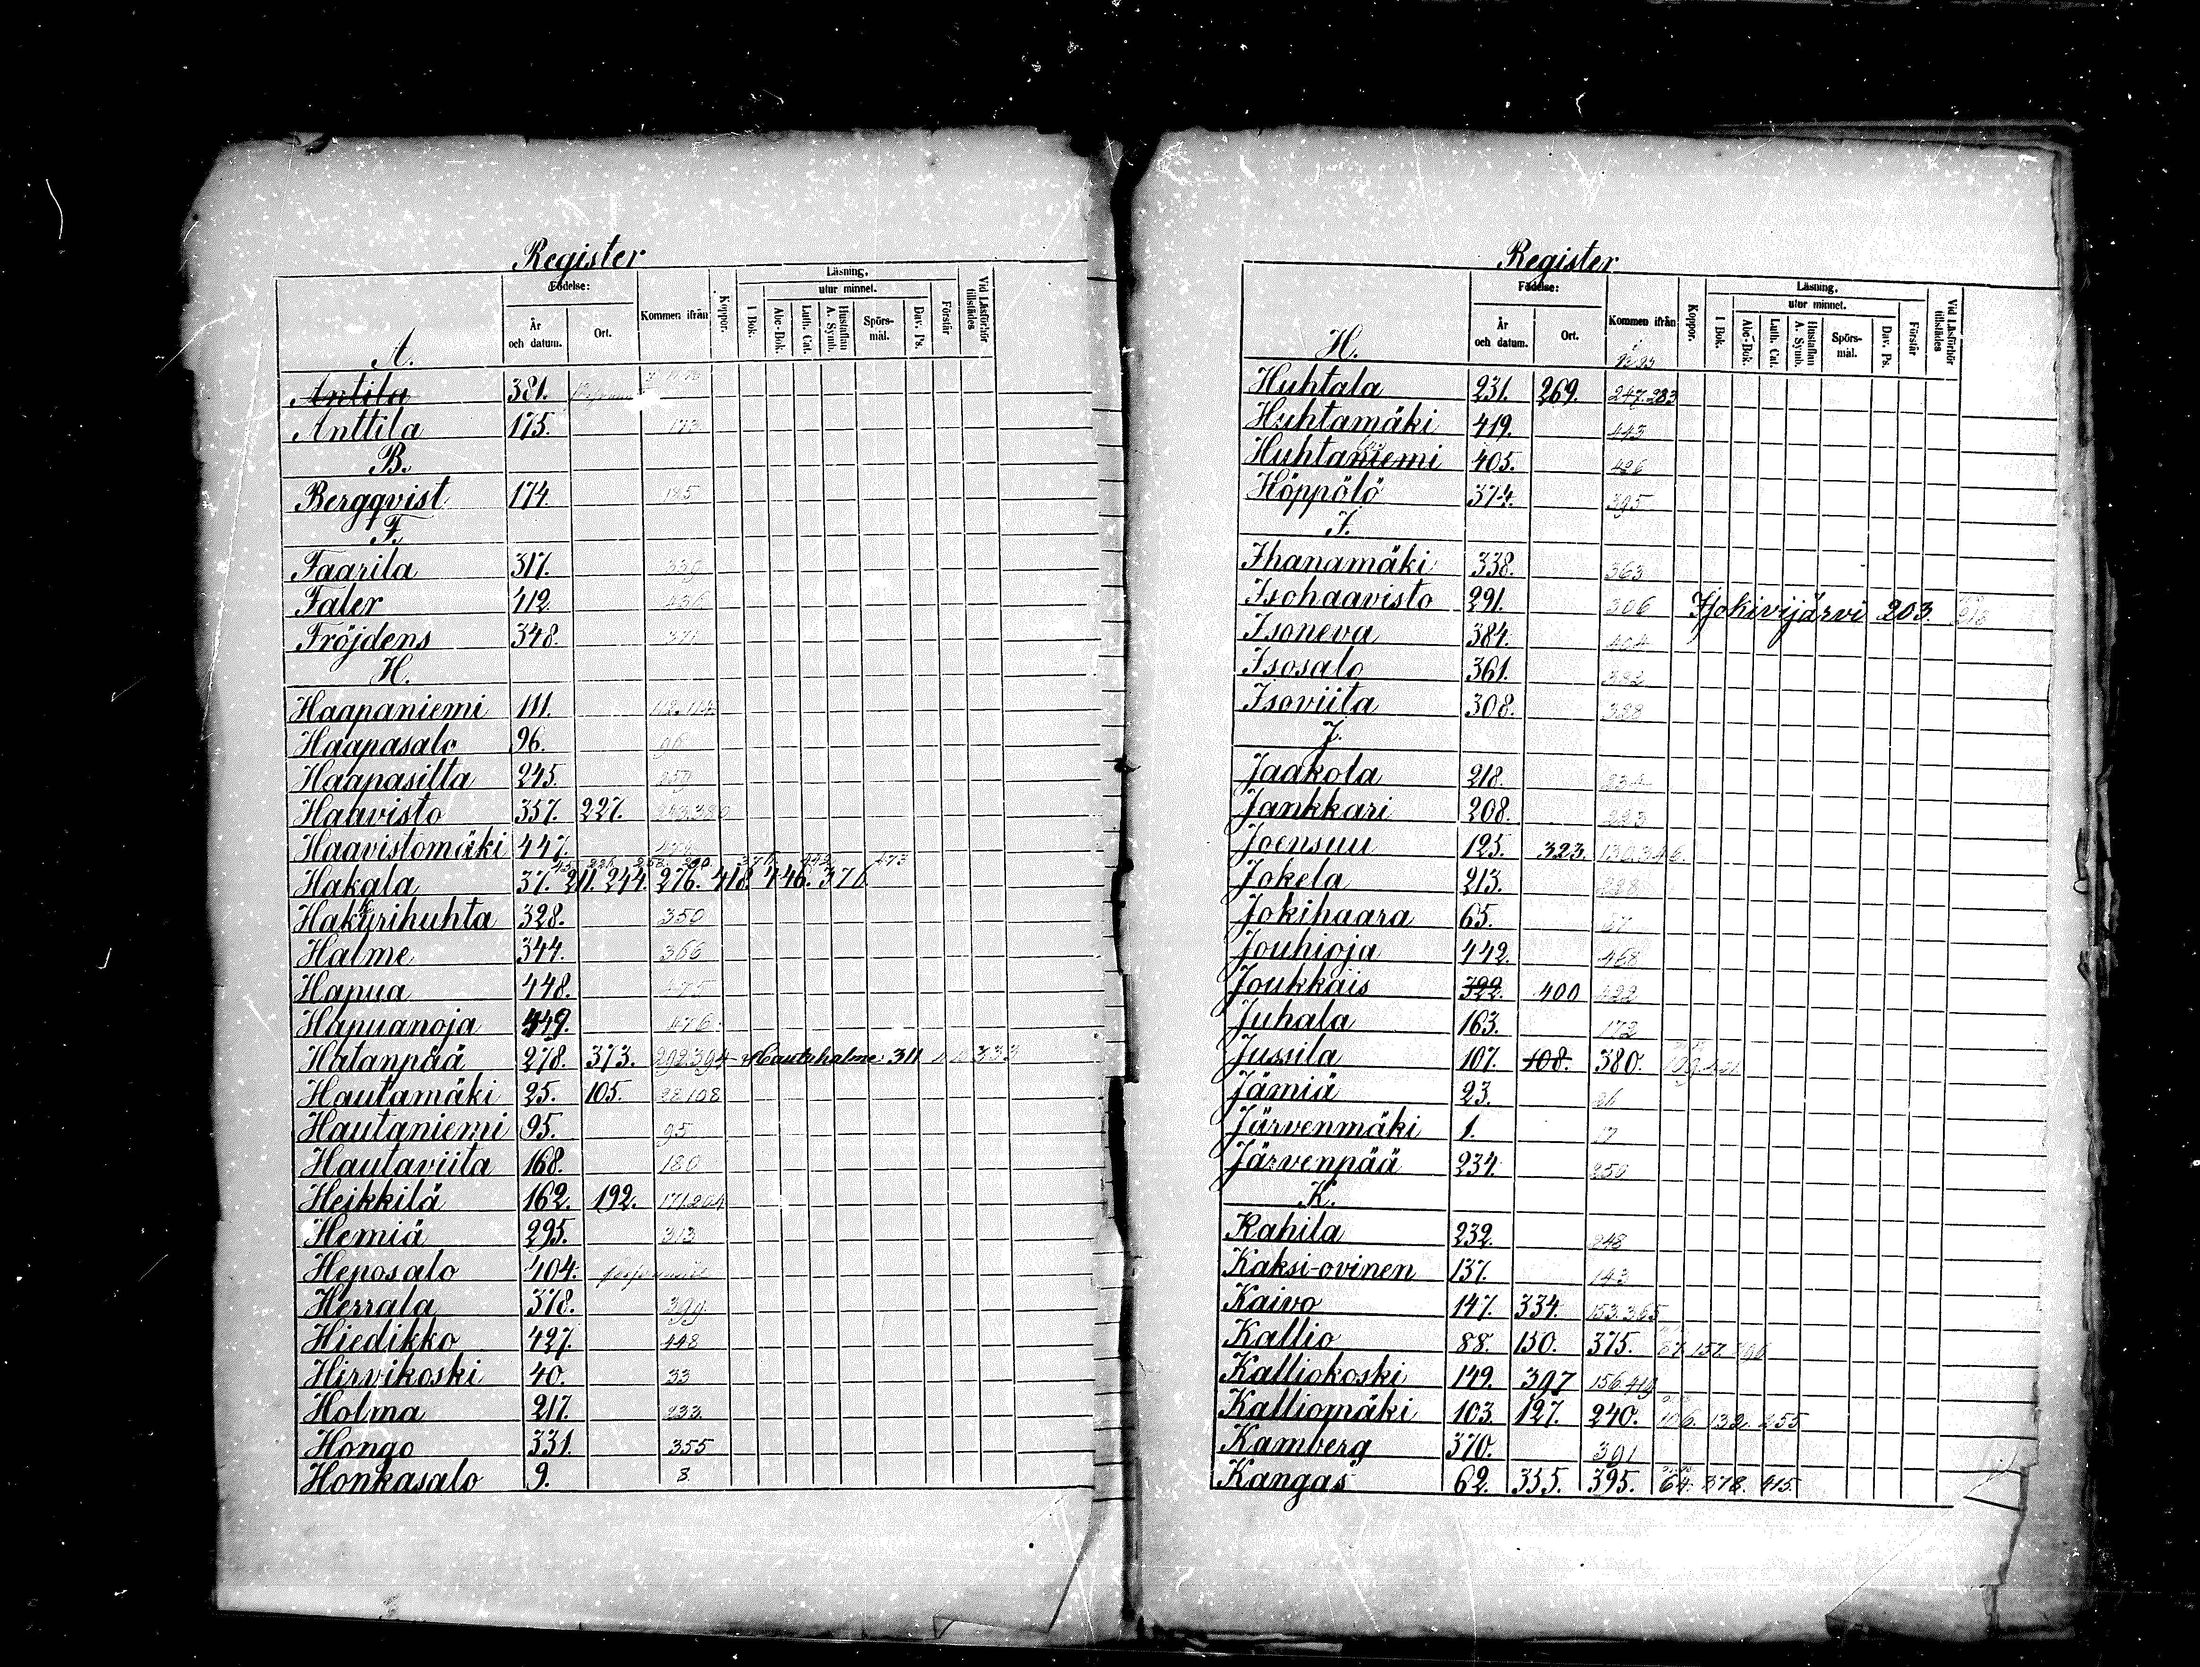 Register
Födelse:
Läsning,
utur minnet.
År och datum.
Ort.
Kommen ifrån
Koppor.
I Bok.
Abc-Bok.
Luth. Cat.
Hustaflan A. Symb.
Spörs-mål.
Dav. Ps.
Förstår
Vid Läsförhör tillstädes
A.
Antila 381.
Anttila 175.
B.
Bergqvist 174. 185
F.
Faarila 317.
Faler 412 436
Fröjdens 348. 371
H.
Haapaniemi 111.
Haapasalo 96. 96
Haapasilta 245. 259
Haavisto 357. 227. 243.380
Haavistomäki 447.
Hakala 37. 211. 244. 276. 418. 446. 376.
Hakkyrihuhta 328. 350
Halme 344. 366
Hapua 448. 475
Hapuanoja 449. 476
Hatanpää 278. 373. 292.394 Hautahalme 311 333
Hautamäki 25. 105. 28.108
Hautaniemi 95. 95
Hautaviita 168. 180
Heikkilä 162. 192. 171.204
Hemiä 295. 313
Heposalo 404.
Herrala 378. 399
Hiedikko 427. 448
Hirvikoski 40. 33
Holma 217. 233.
Hongo 331. 355
Honkasalo 9. 8.
Register
Födelse:
Läsning,
utur minnet.
År och datum.
Ort.
Kommen ifrån
Koppor.
I Bok.
Abc-Bok.
Luth. Cat.
Hustaflan A. Symb.
Spörs-mål.
Dav. Ps.
Förstår
Vid Läsförhör tillstädes
H.
Huhtala 231. 269. 247.283
Huhtamäki 419. 443
Huhtaniemi 405. 426
Höppölö 374. 395
I.
Ihanamäki 338. 363
Isohaavisto 291. 306 Isokivijärvi 203.
Isoneva 384. 404
Isosalo 361. 382
Isoviita 308. 328
J.
Jaakola 218. 234
Jankkari 208. 223
Joensuu 125. 323. 130.346
Jokela 213. 228
Jokihaara 65.
Jouhioja 442. 468
Joukkais 322. 400 422
Juhala 163. 172
Jussila 107. 108. 380.
Jämiä 23. 26
Järvenmäki 1. 17
Järvenpää 234. 250
K.
Kahila 232. 248
Kaksi-ovinen 137. 143
Kaivo 147. 334. 153.365
Kallio 88. 150. 375. 87. 157.
Kalliokoski 149. 397 156.419
Kalliomäki 103. 127. 240. 106. 132. 255
Kamberg 370. 391
Kangas 62. 355. 395. 64. 378. 415.